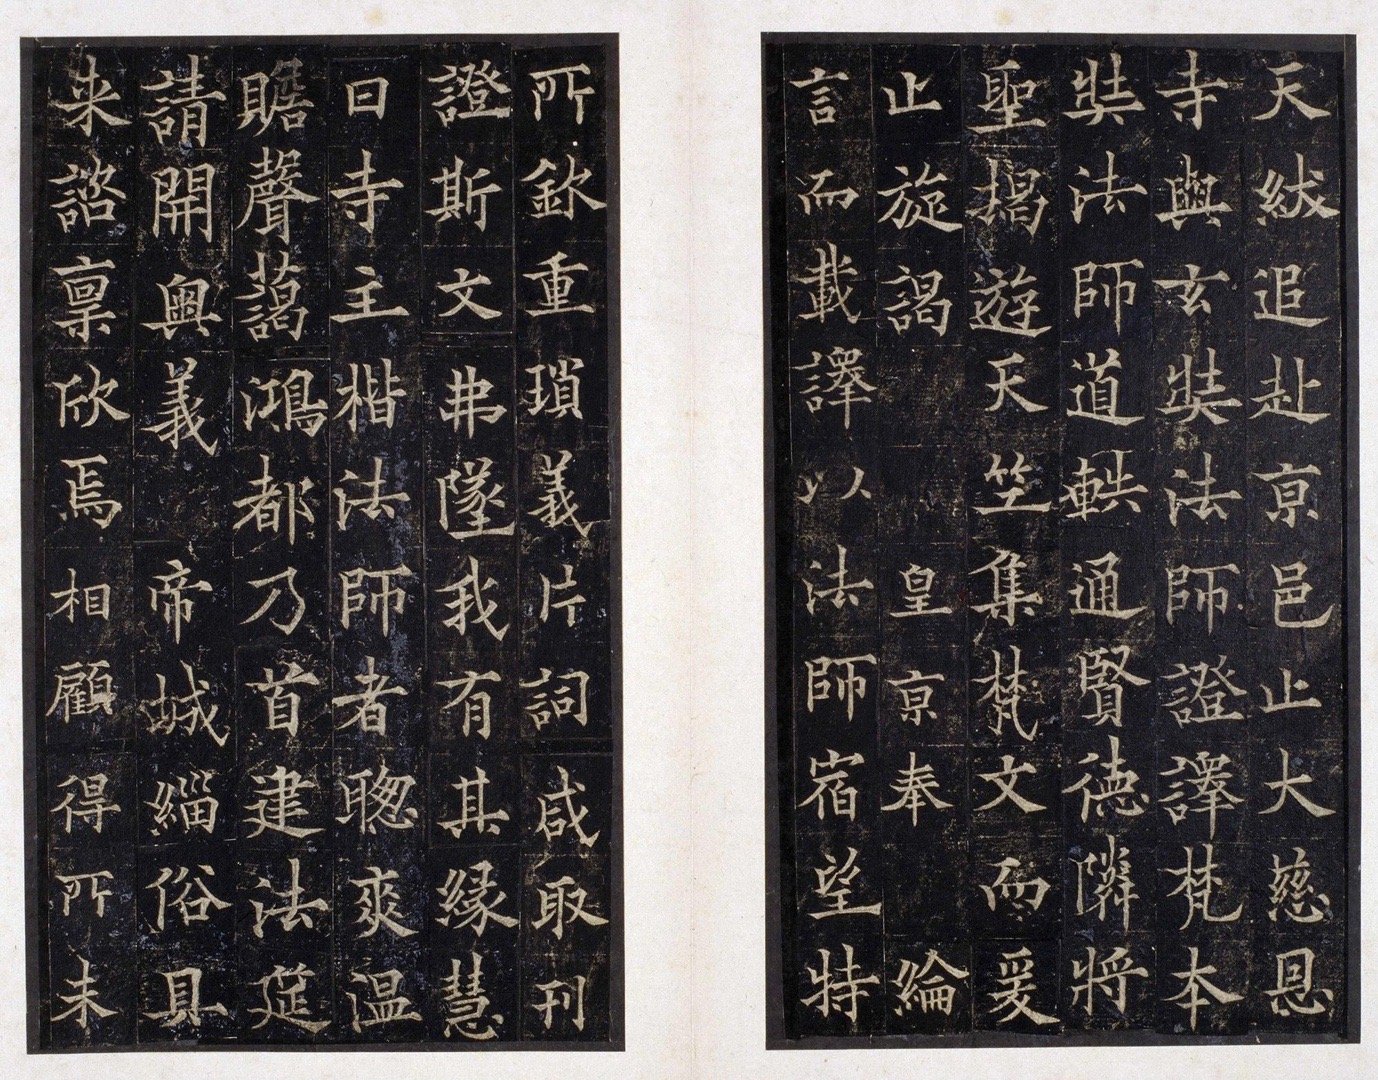 天紱追赴京邑止大慈恩
寺與玄奘法師證譯梵本
奘法師道軼通賢德隣將
聖揭遊天竺集梵文而爰
止旋謁皇京奉綸
言而載譯以法師宿望特
所欽重瑣義片詞咸取刊
證斯文弗墜我有其緣慧
日寺主楷法師者聰爽温
贍聲藹鴻都乃首建法筵
請開奧義帝城緇俗具
来諮稟欣焉相顧得所未